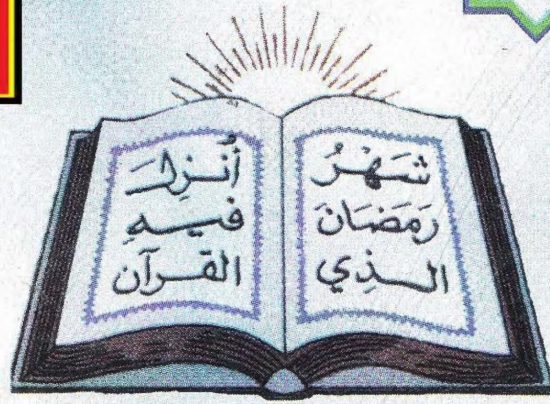 شَهْرُ
رَمَضَانَ
الَّذِي
أُنْزِلَ
فِيهِ
القرآن